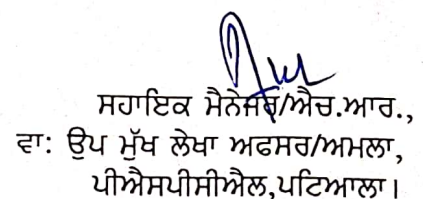 ਸਹਾਇਕ ਮੈਨੇਜਰ/ਐਚ.ਆਰ.,
ਵਾ: ਉਪ ਮੁੱਖ ਲੇਖਾ ਅਫਸਰ/ਅਮਲਾ,
ਪੀਐਸਪੀਸੀਐਲ,ਪਟਿਆਲਾ।